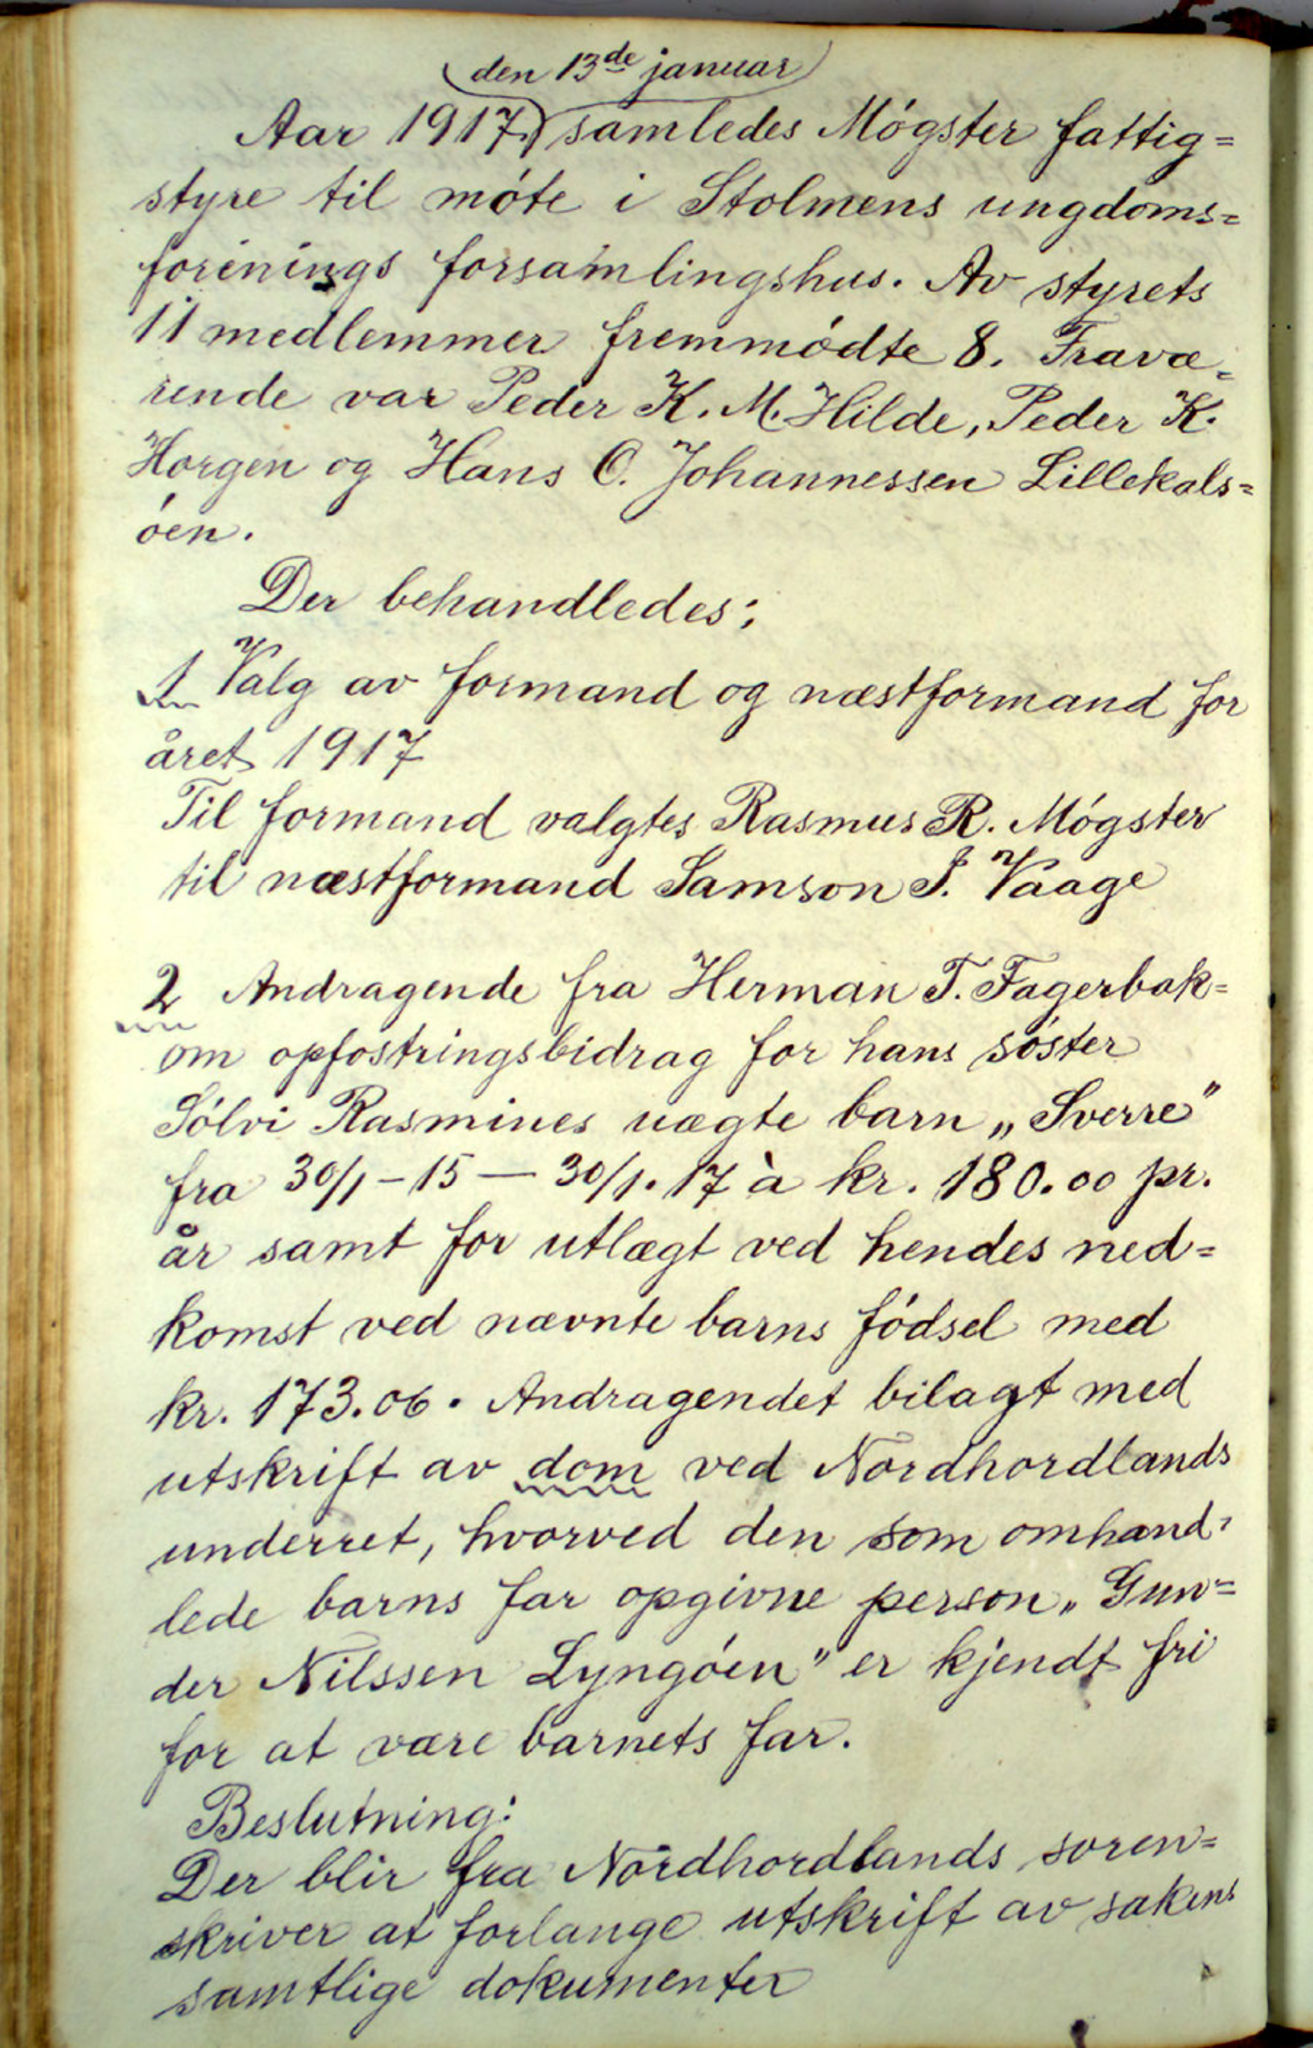 den 13de januar
Aar 1917. samledes Møgster fattig=
styre til møte i Stolmens ungdoms=
forenings forsamlingshus. Av styrets
11 medlemmer fremmødte 8. Fravæ=
rende var Peder K. M. Hilde, Peder K.
Horgen og Hans O. Johannessen Lillekals=
øen.
Der behandledes:
1 Valg av formand og næstformand for
året 1917
Til formand valgtes Rasmus R. Møgster
til næstformand Samson J. Vaage
2 Andragende fra Herman T. Fagerbak=
om opfostringsbidrag for hans søster
Sølvi Rasmines uægte barn „Sverre”
fra 30/1 - 15 — 30/1. 17 à kr. 180.00 pr.
år samt for utlægt ved hendes ned=
komst ved nævnte barns fødsel med
kr. 173.06. Andragendet bilagt med
utskrift av dom ved Nordhordlands
underret, hvorved den som omhand=
lede barns far opgivne person „Gun=
der Nilssen Lyngøen” er kjendt fri
for at være barnets far.
Beslutning:
Der blir fra Nordhordlands soren=
skriver at forlange utskrift av sakens
samtlige dokumenter